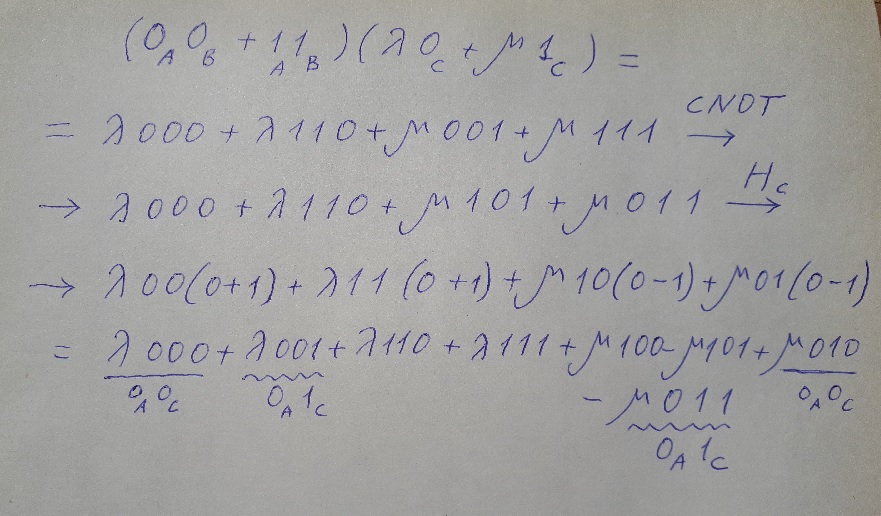 (0_A 0_B + 1_A 1_B)(λ0_C + μ1_C) =
= λ000 + λ110 + μ001 + μ111 CNOT →
→ λ000 + λ110 + μ101 + μ011 H_C →
→ λ00(0+1) + λ11(0+1) + μ10(0-1) + μ01(0-1)
= λ000 + λ001 + λ110 + λ111 + μ100 - μ101 + μ010
0_A 0_C 0_A 1_C - μ011 0_A 0_C
0_A 1_C